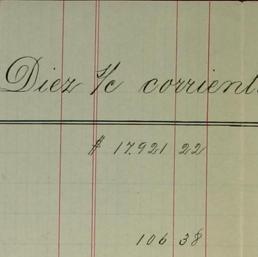 Diez %c corrient
# 17.921 22
106 38